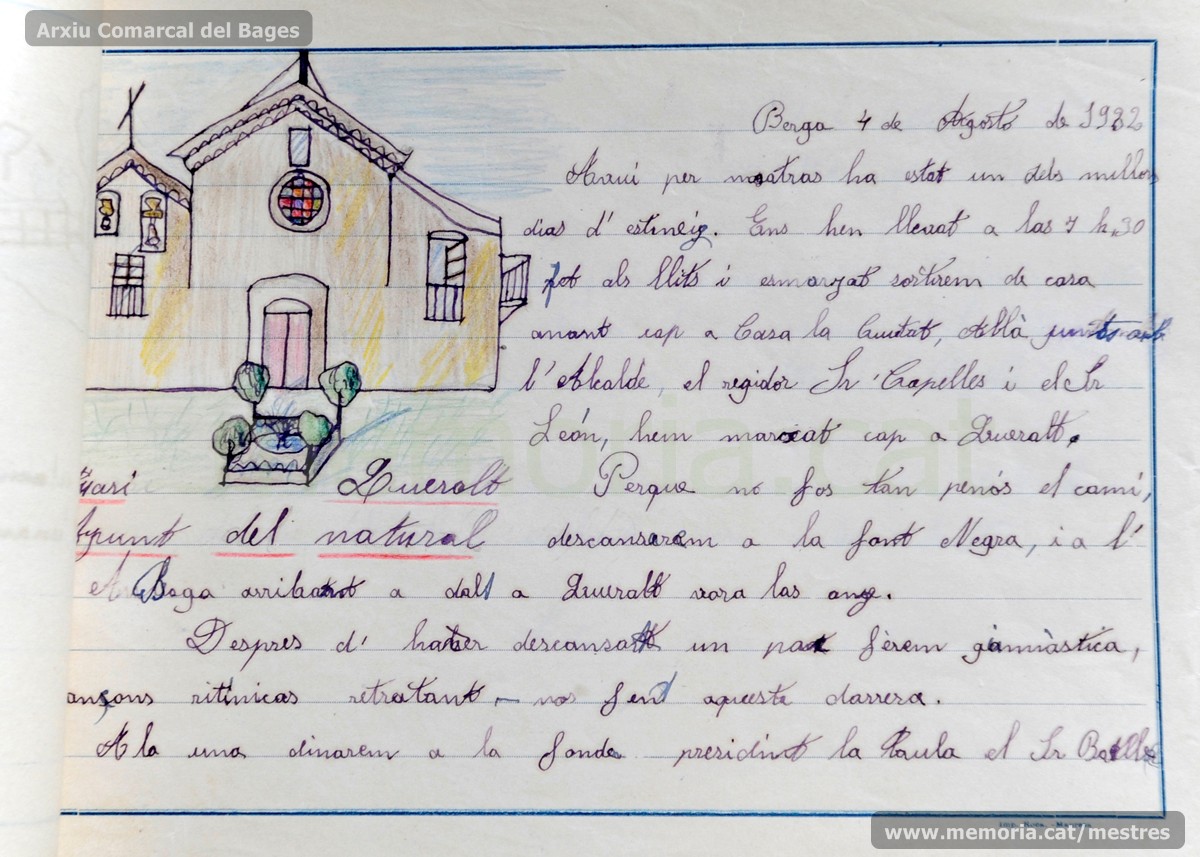 Arxiu Comarcal del Bages
Berga 4 de Agosto de 1932
Avui per nosatras ha estat un dels millors
dias d'estiueig. Ens hem llevat a las 7 h. 30
fet als llits i esmorzat sortirem de casa
anant cap a Casa la Ciutat, Allà junts amb
l'Alcalde, el regidor Sr. Capelles i el Sr
León, hem marxat cap a Queralt.
Queralt Perque no fos tan penós el camí,
punt del natural descansarem a la font Negra, i a l'
Baga arribant a dalt a Queralt vora las onze.
Despres d' haber descansat un pox fèrem gimnàstica,
ançons ritmicas retratant-nos fent aquesta darrera.
A la una dinarem a la fonda presidint la taula el Sr Batlle
memoria.cat
Imp. Roca - Manresa
www.memoria.cat/mestres